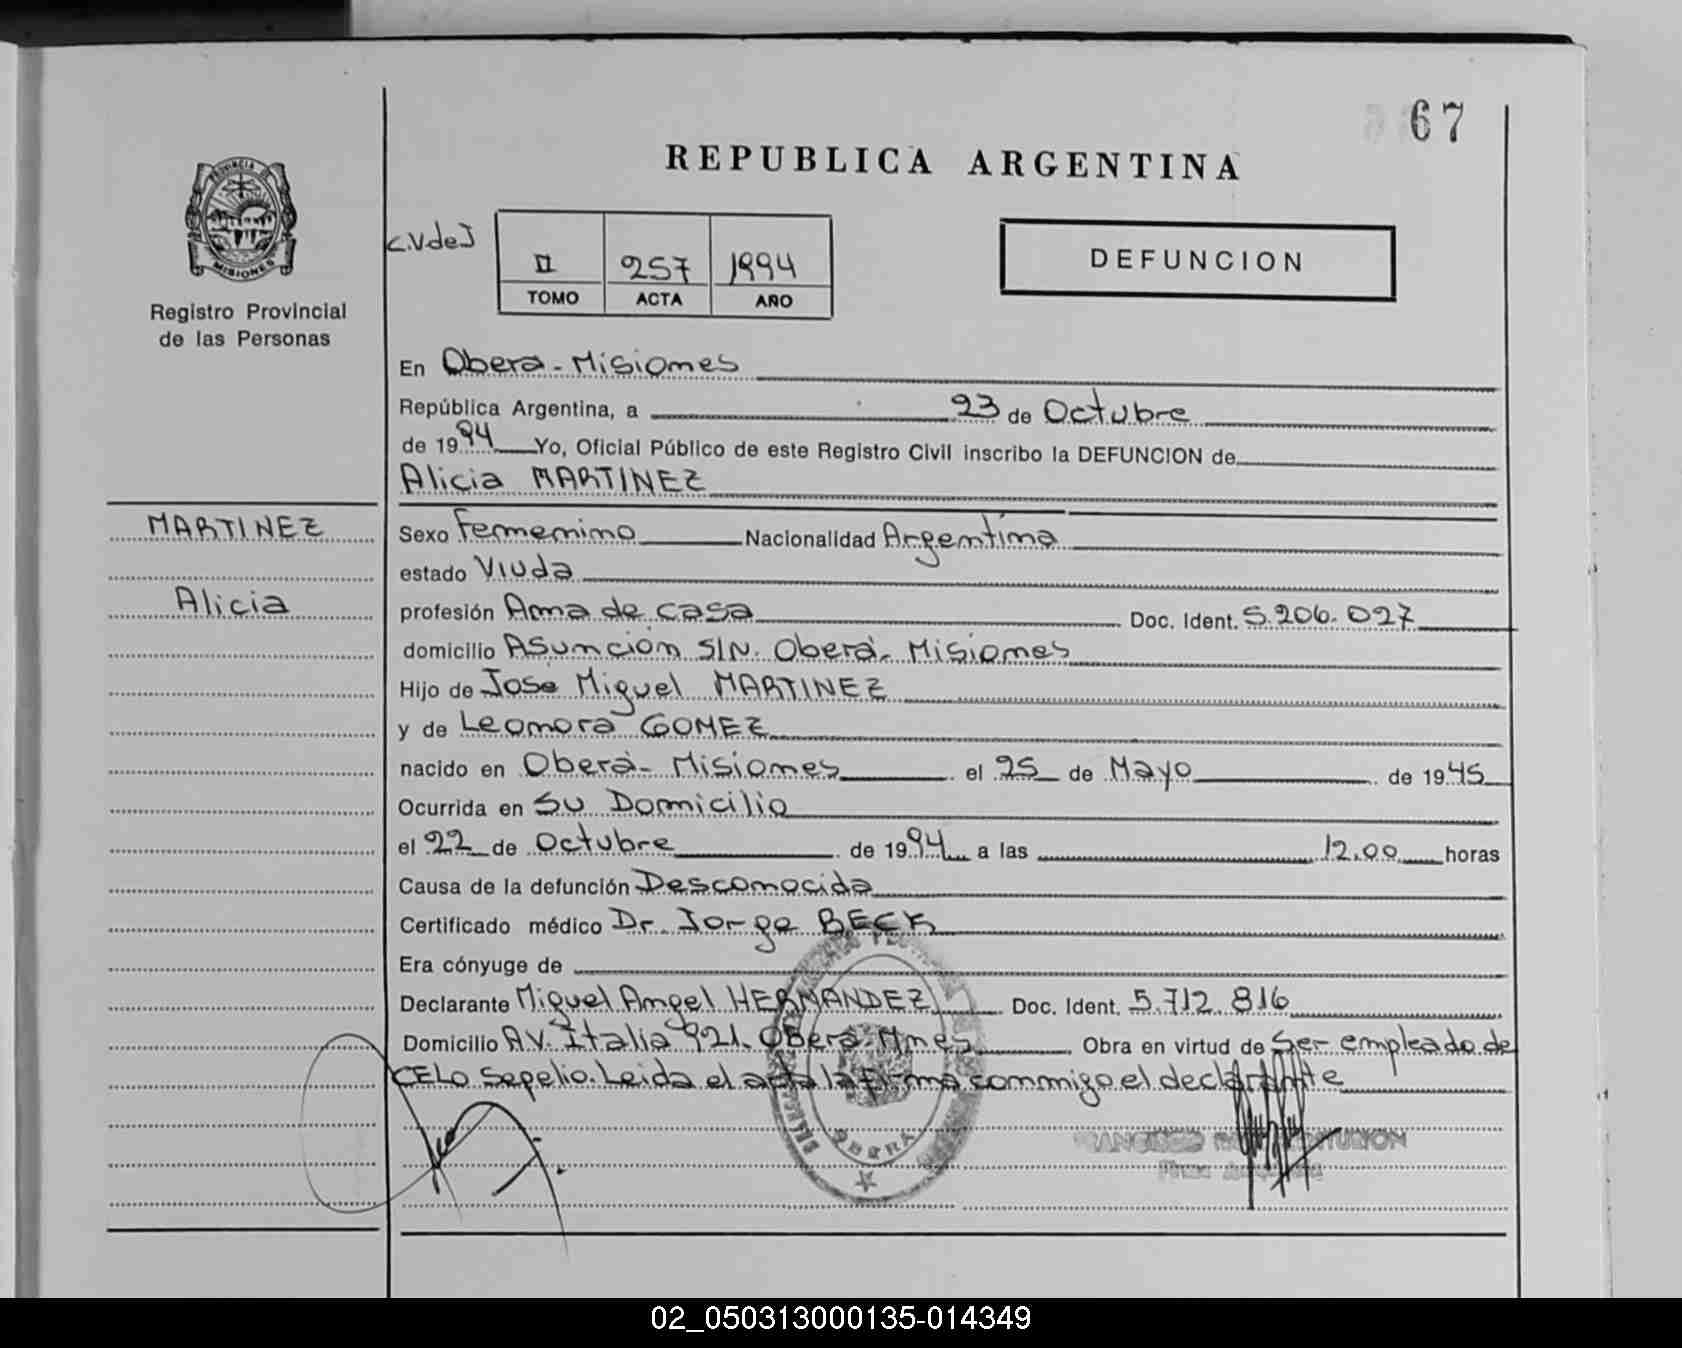 67
REPUBLICA ARGENTINA
PROVINCIA DE
MISIONES
Registro Provincial
de las Personas
C.V.deJ
II 257 1994
TOMO ACTA AÑO
DEFUNCION
En Obera - Misiones
República Argentina, a 23 de Octubre
de 1994 Yo, Oficial Público de este Registro Civil inscribo la DEFUNCION de
Alicia MARTINEZ
MARTINEZ
Alicia
Sexo Femenino Nacionalidad Argentina
estado Viuda
profesión Ama de casa Doc. Ident. 5.206.027
domicilio Asunción S/N. Oberá - Misiones
Hijo de Jose Miguel MARTINEZ
y de Leonora GOMEZ
nacido en Oberá - Misiones el 25 de Mayo de 1945
Ocurrida en Su Domicilio
el 22 de Octubre de 1994 a las 12,00 horas
Causa de la defunción Desconocida
Certificado médico Dr. Jorge BECK
Era cónyuge de
Declarante Miguel Angel HERNANDEZ Doc. Ident. 5.712.816
Domicilio AV. Italia 921. Obera - Mnes Obra en virtud de Ser empleado de
CELO Sepelio. Leida el acta la firma conmigo el declarante
OBERA
FRANCISCO
02_050313000135-014349